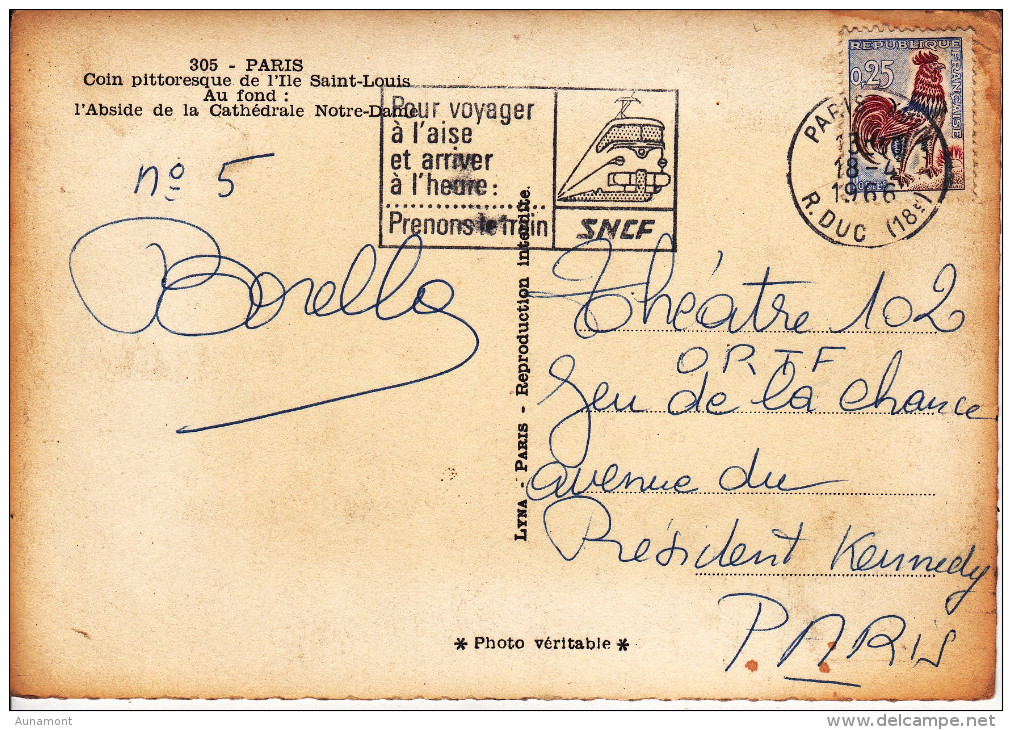 305 - PARIS
Coin pittoresque de l'Ile Saint-Louis
Au fond :
l'Abside de la Cathédrale Notre-Dame
Pour voyager
à l'aise
et arriver
à l'heure :
Prenons le train
SNCF
REPUBLIQUE FRANÇAISE
0,25
POSTES
PARIS
18-4
1966
R. DUC (18e)
nº 5
Borella
LYNA - PARIS - Reproduction interdite.
Théatre 102
ORTF
Jeu de la chance
avenue du
Président Kennedy
PARIS
* Photo véritable *
Aunamont
delcampe.net